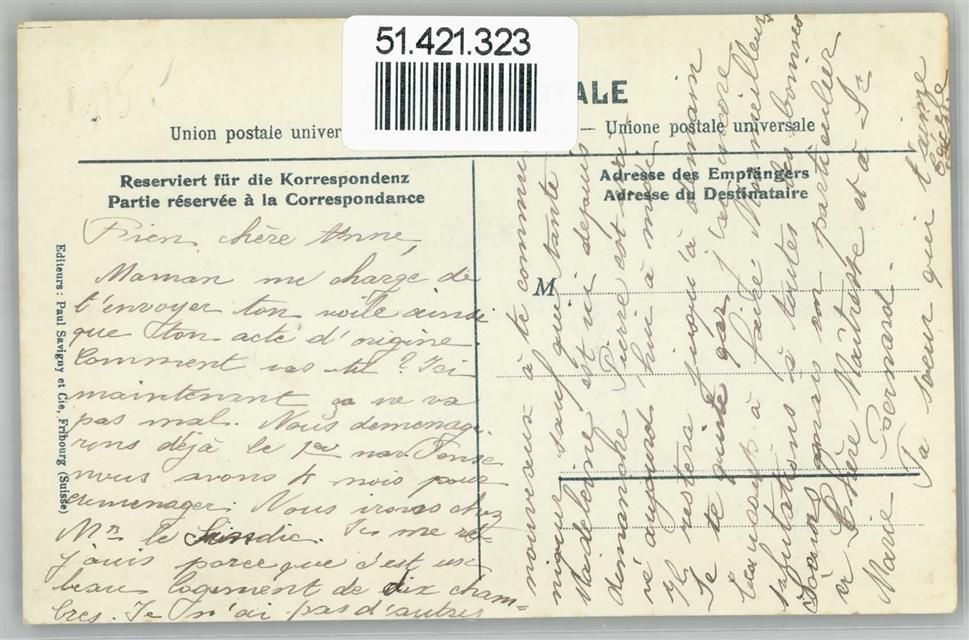 51.421.323
ALE
Union postale univer
— Unione postale universale
Reserviert für die Korrespondenz
Partie réservée à la Correspondance
Adresse des Empfängers
Adresse du Destinataire
M
Editeurs: Paul Savigny et Cie, Fribourg (Suisse)
Bien chère Anne,
Maman me charge de
t'envoyer ton voile ainsi
que ton acte d'origine.
Comment vas-tu? Ici
maintenant ça ne va
pas mal. Nous demenage
rons déjà le 1er mai
nous avons mois pour
emmenager. Nous irons chez
Mr le Sindic. Je me ré-
jouis parce que c'est un
beau logement de dix cham-
bres. Je n'ai pas d'autres
nouveaux à te commu-
niquer sauf que tante
Madeleine est ici depuis
dimanche. Pierre est
aujourd'hui à midi
Il restera jusqu'à demain
Je te quitte
à faire
salutations à toutes les bonnes
soeurs mais en particulier
à Chère Maitresse et à Sr
Marie Bernard.
Ta soeur qui t'aime
Cécile